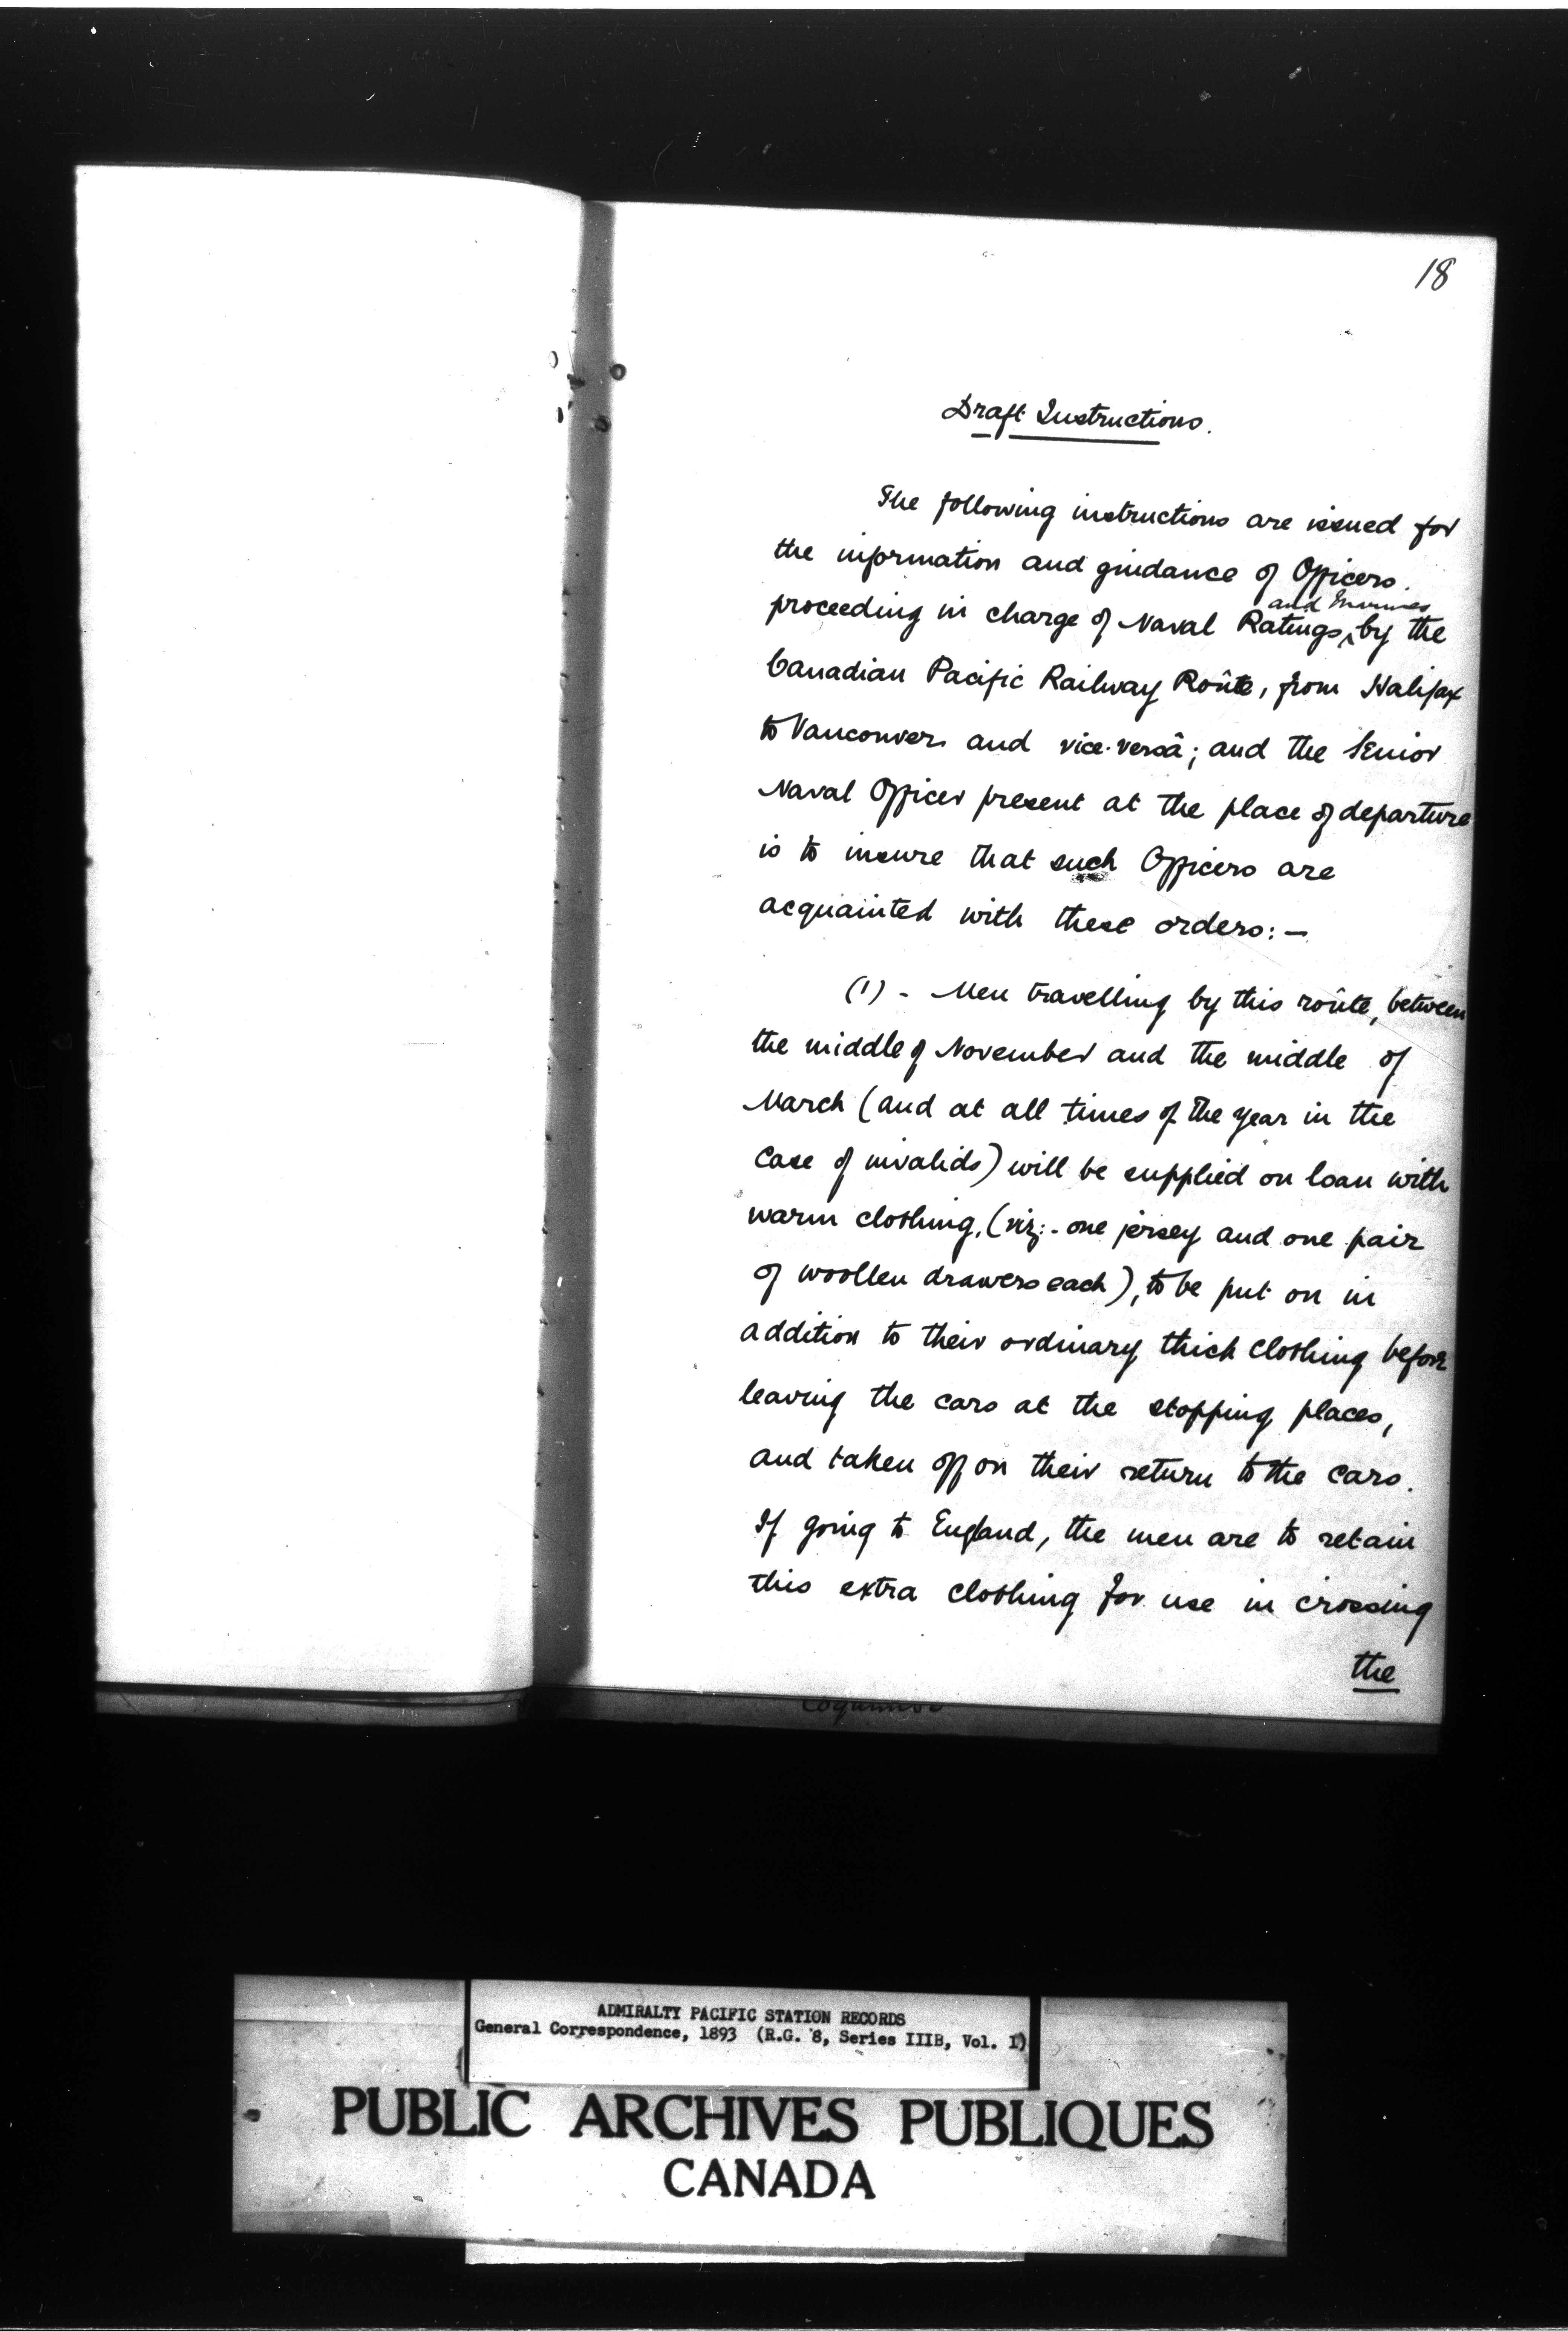 18
Draft Instructions.
The following instructions are issued for
the information and guidance of Officers.
and Marines
proceeding in charge of Naval Ratings ‸ by the
Canadian Pacific Railway Roûte, from Halifax
to Vancouver. and vice-versâ; and the Senior
Naval Officer present at the place of departure
is to insure that such Officers are
acquainted with these orders:—
(1) - Men travelling by this roûte, between
the middle of November and the middle of
March (and at all times of the year in the
case of invalids) will be supplied on loan with
warm clothing, (viz:- one jersey and one pair
of woollen drawers each), to be put on in
addition to their ordinary thick clothing before
leaving the cars at the stopping places,
and taken off on their return to the cars.
If going to England, the men are to retain
this extra clothing for use in crossing
the
ADMIRALTY PACIFIC STATION RECORDS
General Correspondence, 1893 (R.G. 8, Series IIIB, Vol. 1)
PUBLIC ARCHIVES PUBLIQUES
CANADA